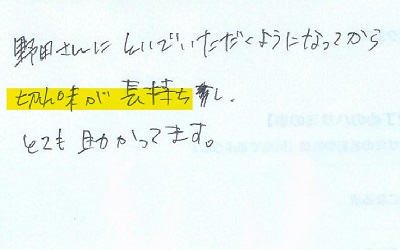 野田さんにといでいただくようになってから
切れ味が長持ちし、
とても助かってます。